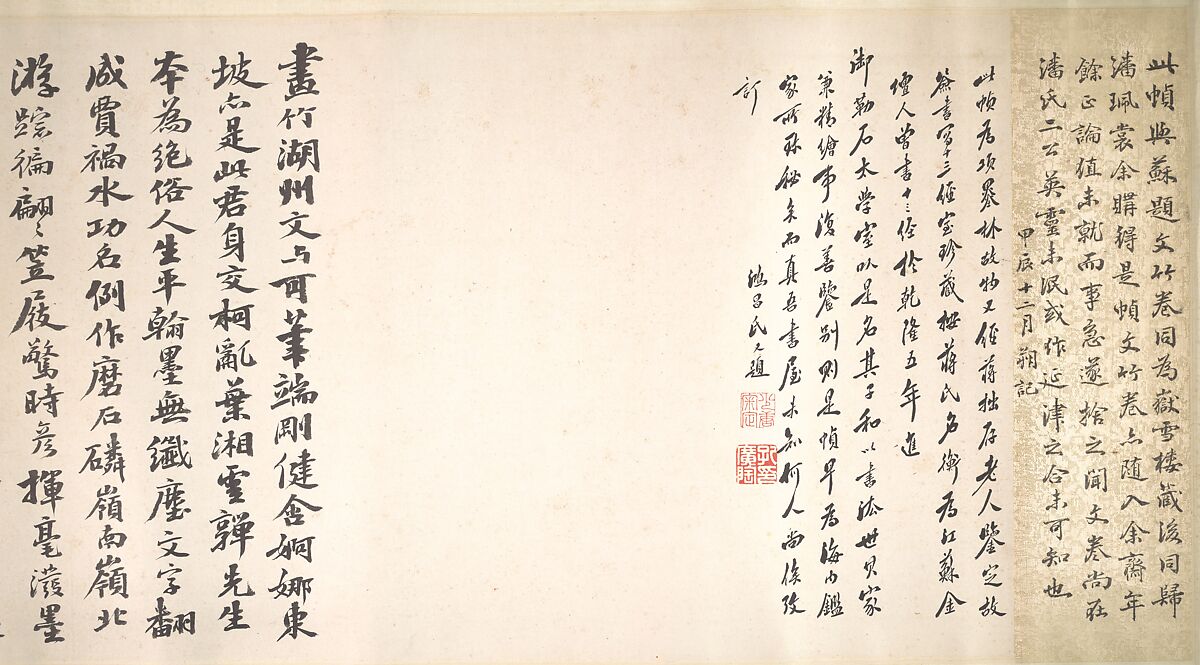 此幀與蘇題文竹卷同為嶽雪樓藏後同歸
潘珮裳余購得是幀文竹卷亦随入余齋年
餘正論值未就而事急遂捨之聞文卷尚在
潘氏二公英靈未泯或作延津之合未可知也
甲辰十二月朔記
此幀為項墨林故物又經蔣拙存老人鑒定故
籤書寫十三經室珍藏按蔣氏名衡為江蘇金
壇人曾書十三經於乾隆五年進
御勒石太學室以是名其子和以書法世其家
兼精繪事復善鑒別則是幀早為海内鑑
家所珎秘矣而真吾書屋未知何人尚俟攷
訂
鴻召氏又題
畫竹湖州文与可筆端剛健含婀娜東
坡亦是此君身交柯亂葉湘雲嚲先生
本為絶俗人生平翰墨無纖塵文字翻
成賈禍水功名例作磨石磷嶺南嶺北
游踪徧翩〻笠屐驚時彦揮毫潑墨